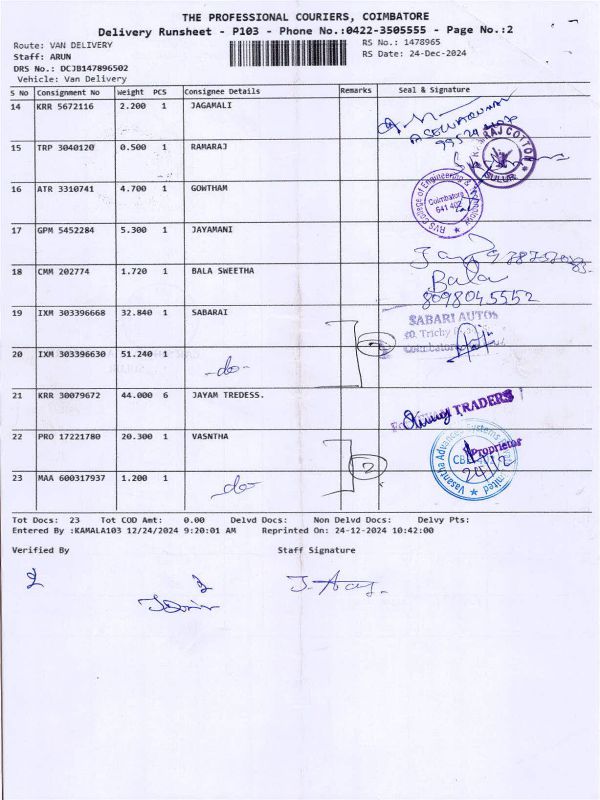 THE PROFESSIONAL COURIERS, COIMBATORE
Delivery Runsheet - P103 - Phone No.:0422-3505555 - Page No.:2
Route: VAN DELIVERY
RS No.: 1478965
Staff: ARUN
RS Date: 24-Dec-2024
DRS No.: DCJB147896502
Vehicle: Van Delivery
S No Consignment No Weight PCS Consignee Details Remarks Seal & Signature
14 KRR 5672116 2.200 1 JAGAMALI
15 TRP 3040120 0.500 1 RAMARAJ
RAJ COTTON
SULUR
16 ATR 3310741 4.700 1 GOWTHAM
RVS College of Engineering &
Coimbatore
641 402
17 GPM 5452284 5.300 1 JAYAMANI
18 CMM 202774 1.720 1 BALA SWEETHA
Bala
8098045552
19 IXM 303396668 32.840 1 SABARAI
SABARI AUTOS
Trichy
Coimbatore
20 IXM 303396630 51.240 1
-do-
2
21 KRR 30079672 44.000 6 JAYAM TREDESS.
TRADERS
Proprietor
22 PRO 17221780 20.300 1 VASNTHA
Vasantha Advanced Systems Limited
CBE
24/12
2
23 MAA 600317937 1.200 1
-do-
Tot Docs: 23 Tot COD Amt: 0.00 Delvd Docs: Non Delvd Docs: Delvy Pts:
Entered By :KAMALA103 12/24/2024 9:20:01 AM Reprinted On: 24-12-2024 10:42:00
Verified By Staff Signature